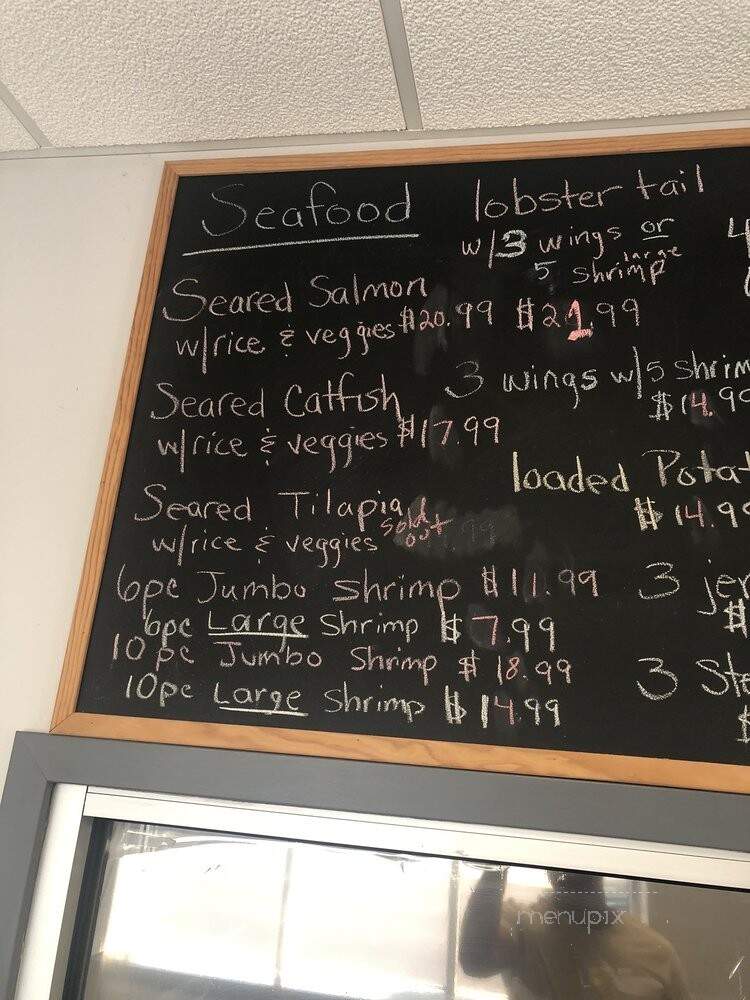 Seafood
Seared Salmon
w/rice & veggies $20.99
Seared Catfish
w/rice & veggies $17.99
Seared Tilapia
w/rice & veggies sold out .99
6pc Jumbo Shrimp $11.99
6pc Large Shrimp $7.99
10pc Jumbo Shrimp $18.99
10pc Large Shrimp $14.99
lobster tail
w/3 wings or
5 large shrimp
$21.99
3 wings w/5 shrim
$14.99
loaded Potat
$14.99
3 jer
$
3 Ste
$
4
menupix